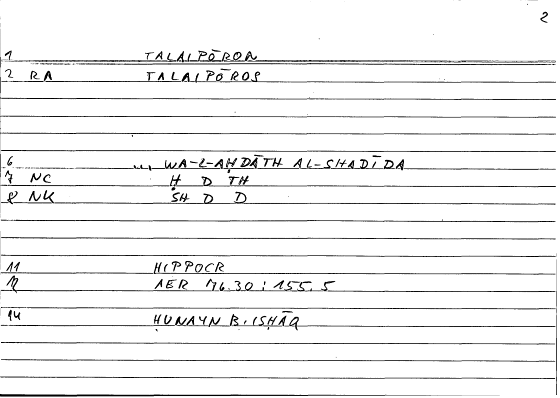 2
1 TALAIPŌRON
2 RA TALAIPŌROS
6 ... WA-L-AḤDĀTH AL-SHADĪDA
7 NC Ḥ D TH
8 NK SH D D
11 HIPPOCR
12 AER 76.30 : 155.5
14 ḤUNAYN B. ISḤĀQ